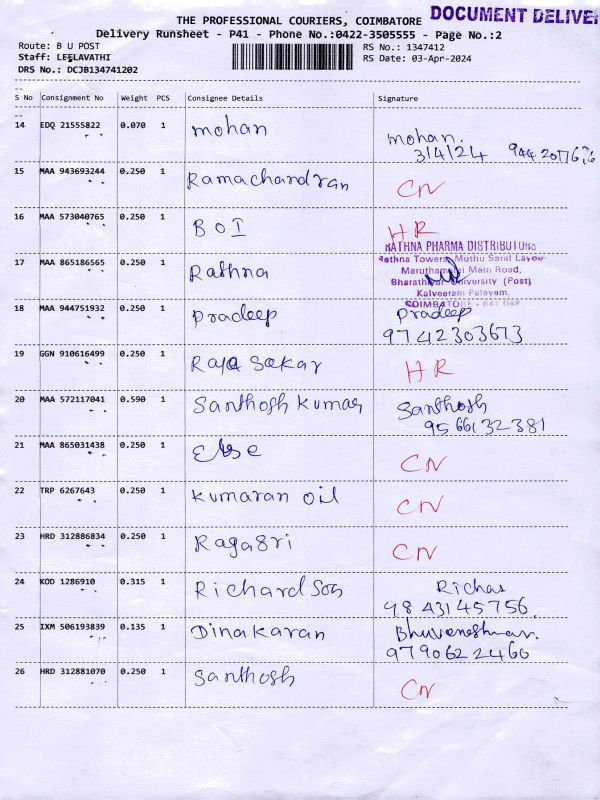 THE PROFESSIONAL COURIERS, COIMBATORE DOCUMENT DELIVE
Delivery Runsheet - P41 - Phone No.:0422-3505555 - Page No.:2
Route: B U POST RS No.: 1347412
Staff: LEELAVATHI RS Date: 03-Apr-2024
DRS No.: DCJB134741202
S No Consignment No Weight PCS Consignee Details Signature
14 EDQ 21555822 0.070 1 mohan mohan.
3/4/24
15 MAA 943693244 0.250 1 Ramachandran CN
16 MAA 573040765 0.250 1 B O I HR
RATHNA PHARMA DISTRIBUTORS
Rathna Towers, Muthu Saral Layout
17 MAA 865186565 0.250 1 Rathna
Maruthamalai Main Road,
Bharathiyar University (Post)
Kalveeram Palayam,
COIMBATORE - 641 046
18 MAA 944751932 0.250 1 Pradeep Pradeep
9742303673
19 GGN 910616499 0.250 1 Raja Sekar HR
20 MAA 572117041 0.590 1 Santhosh Kumar Santhosh
9566132381
21 MAA 865031438 0.250 1 CN
22 TRP 6267643 0.250 1 Kumaran oil CN
23 HRD 312886834 0.250 1 Ragasri CN
24 KOD 1286910 0.315 1 Richardson Richa
9843145756
25 IXM 506193839 0.135 1 Dinakaran
9790622460
26 HRD 312881070 0.250 1 Santhosh CN